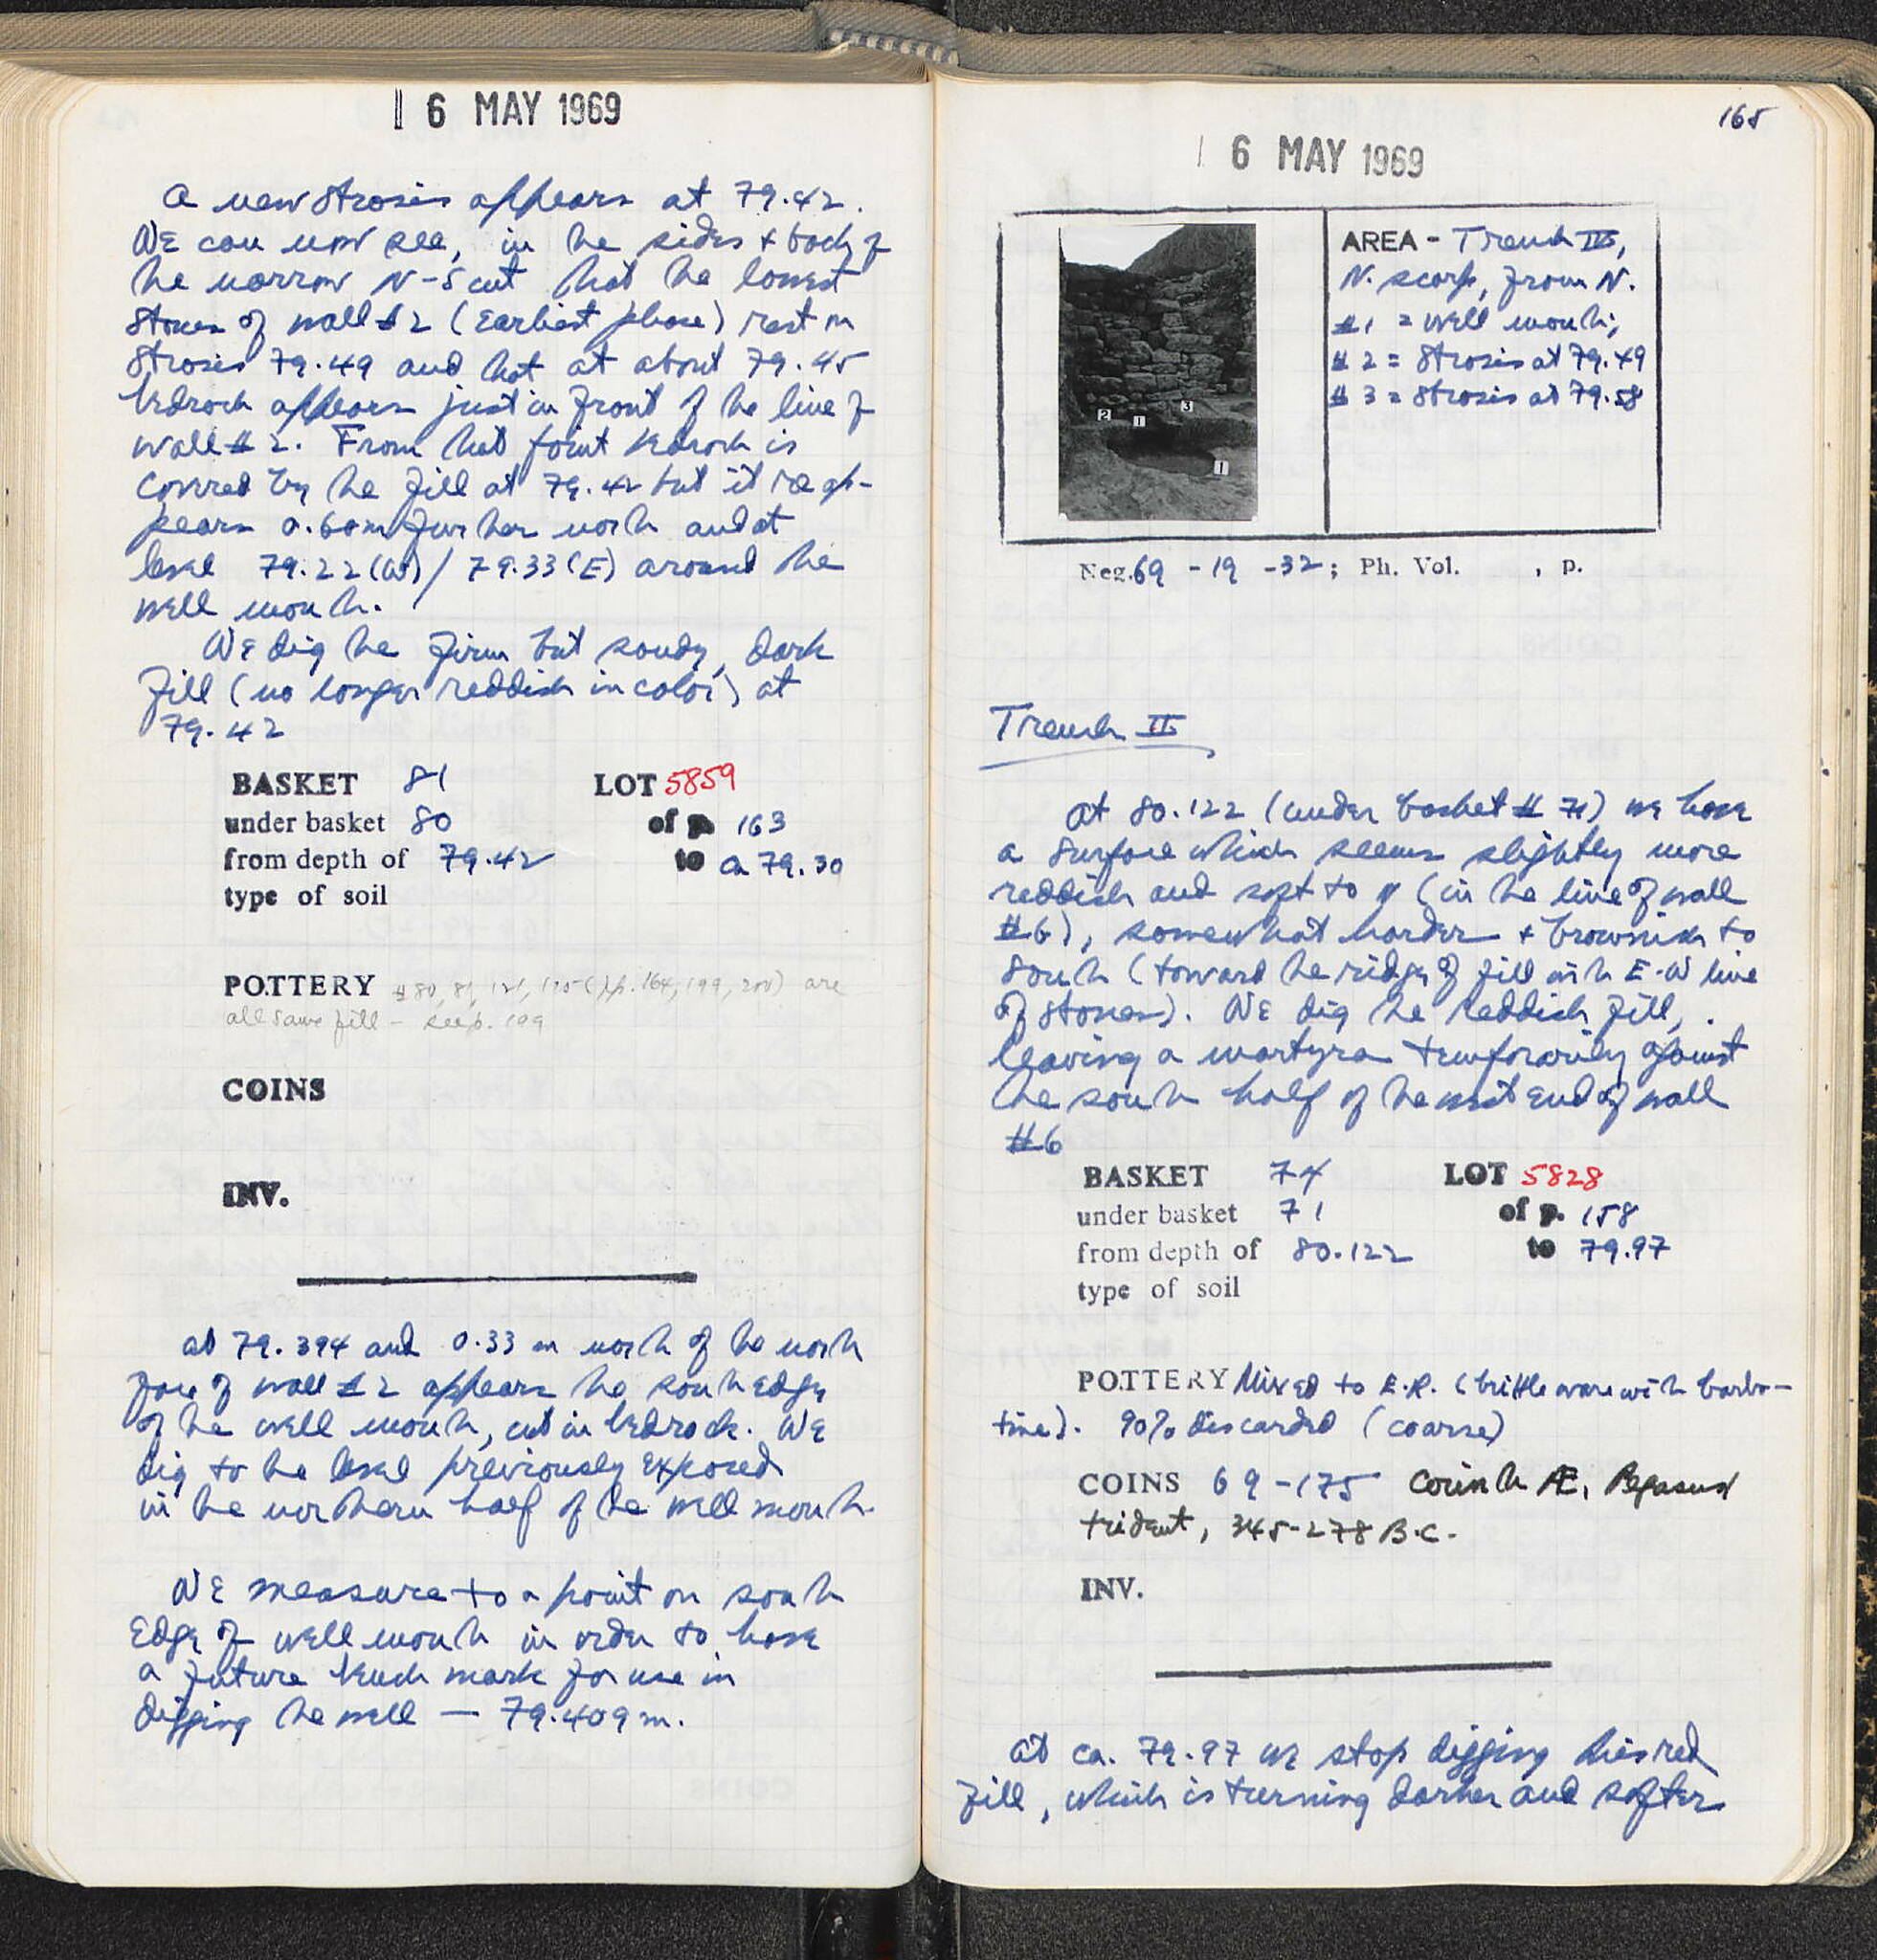 16 MAY 1969
A new strosis appears at 79.42.
We can now see, in the sides + back of
the narrow N-S cut that the lowest
stones of wall #2 (earliest phase) rest on
strosis 79.49 and that at about 79.45
bedrock appears just in front of the line of
wall #2. From that point bedrock is
covered by the fill at 79.42 but it reap-
pears 0.60m further north and at
level 79.22(W) / 79.33(E) around the
well mouth.
We dig the firm but sandy, dark
fill (no longer reddish in color) at
79.42
BASKET 81 LOT 5859
under basket 80 of p. 163
from depth of 79.42 to ca 79.30
type of soil
POTTERY #80, 81, 121, 125 (pp. 164, 199, 200) are
all same fill - see p. 199
COINS
INV.
At 79.394 and 0.33 m north of the north
face of wall #2 appears the south edge
of the well mouth, cut in bedrock. We
dig to the level previously exposed
in the northern half of the well mouth.
We measure to a point on south
edge of well mouth in order to have
a future bench mark for use in
digging the well — 79.409 m.
165
16 MAY 1969
AREA - Trench III,
N. scarp, from N.
#1 = well mouth;
#2 = strosis at 79.49
#3 = strosis at 79.58
2
1
3
1
Neg. 69 - 19 - 32; Ph. Vol. , p.
Trench II
At 80.122 (under basket #71) we have
a surface which seems slightly more
reddish and soft to N (in the line of wall
#6), somewhat harder + brownish to
south (toward the ridge of fill with E-W line
of stones). We dig the reddish fill,
leaving a martyra temporarily against
the south half of the west end of wall
#6
BASKET 74 LOT 5828
under basket 71 of p. 158
from depth of 80.122 to 79.97
type of soil
POTTERY Mixed to E.R. (brittle ware with barbo-
tine). 90% discarded (coarse)
COINS 69-175 Corinth Æ, Pegasus/
trident, 345-278 B.C.
INV.
At ca. 79.97 we stop digging this red
fill, which is turning darker and softer